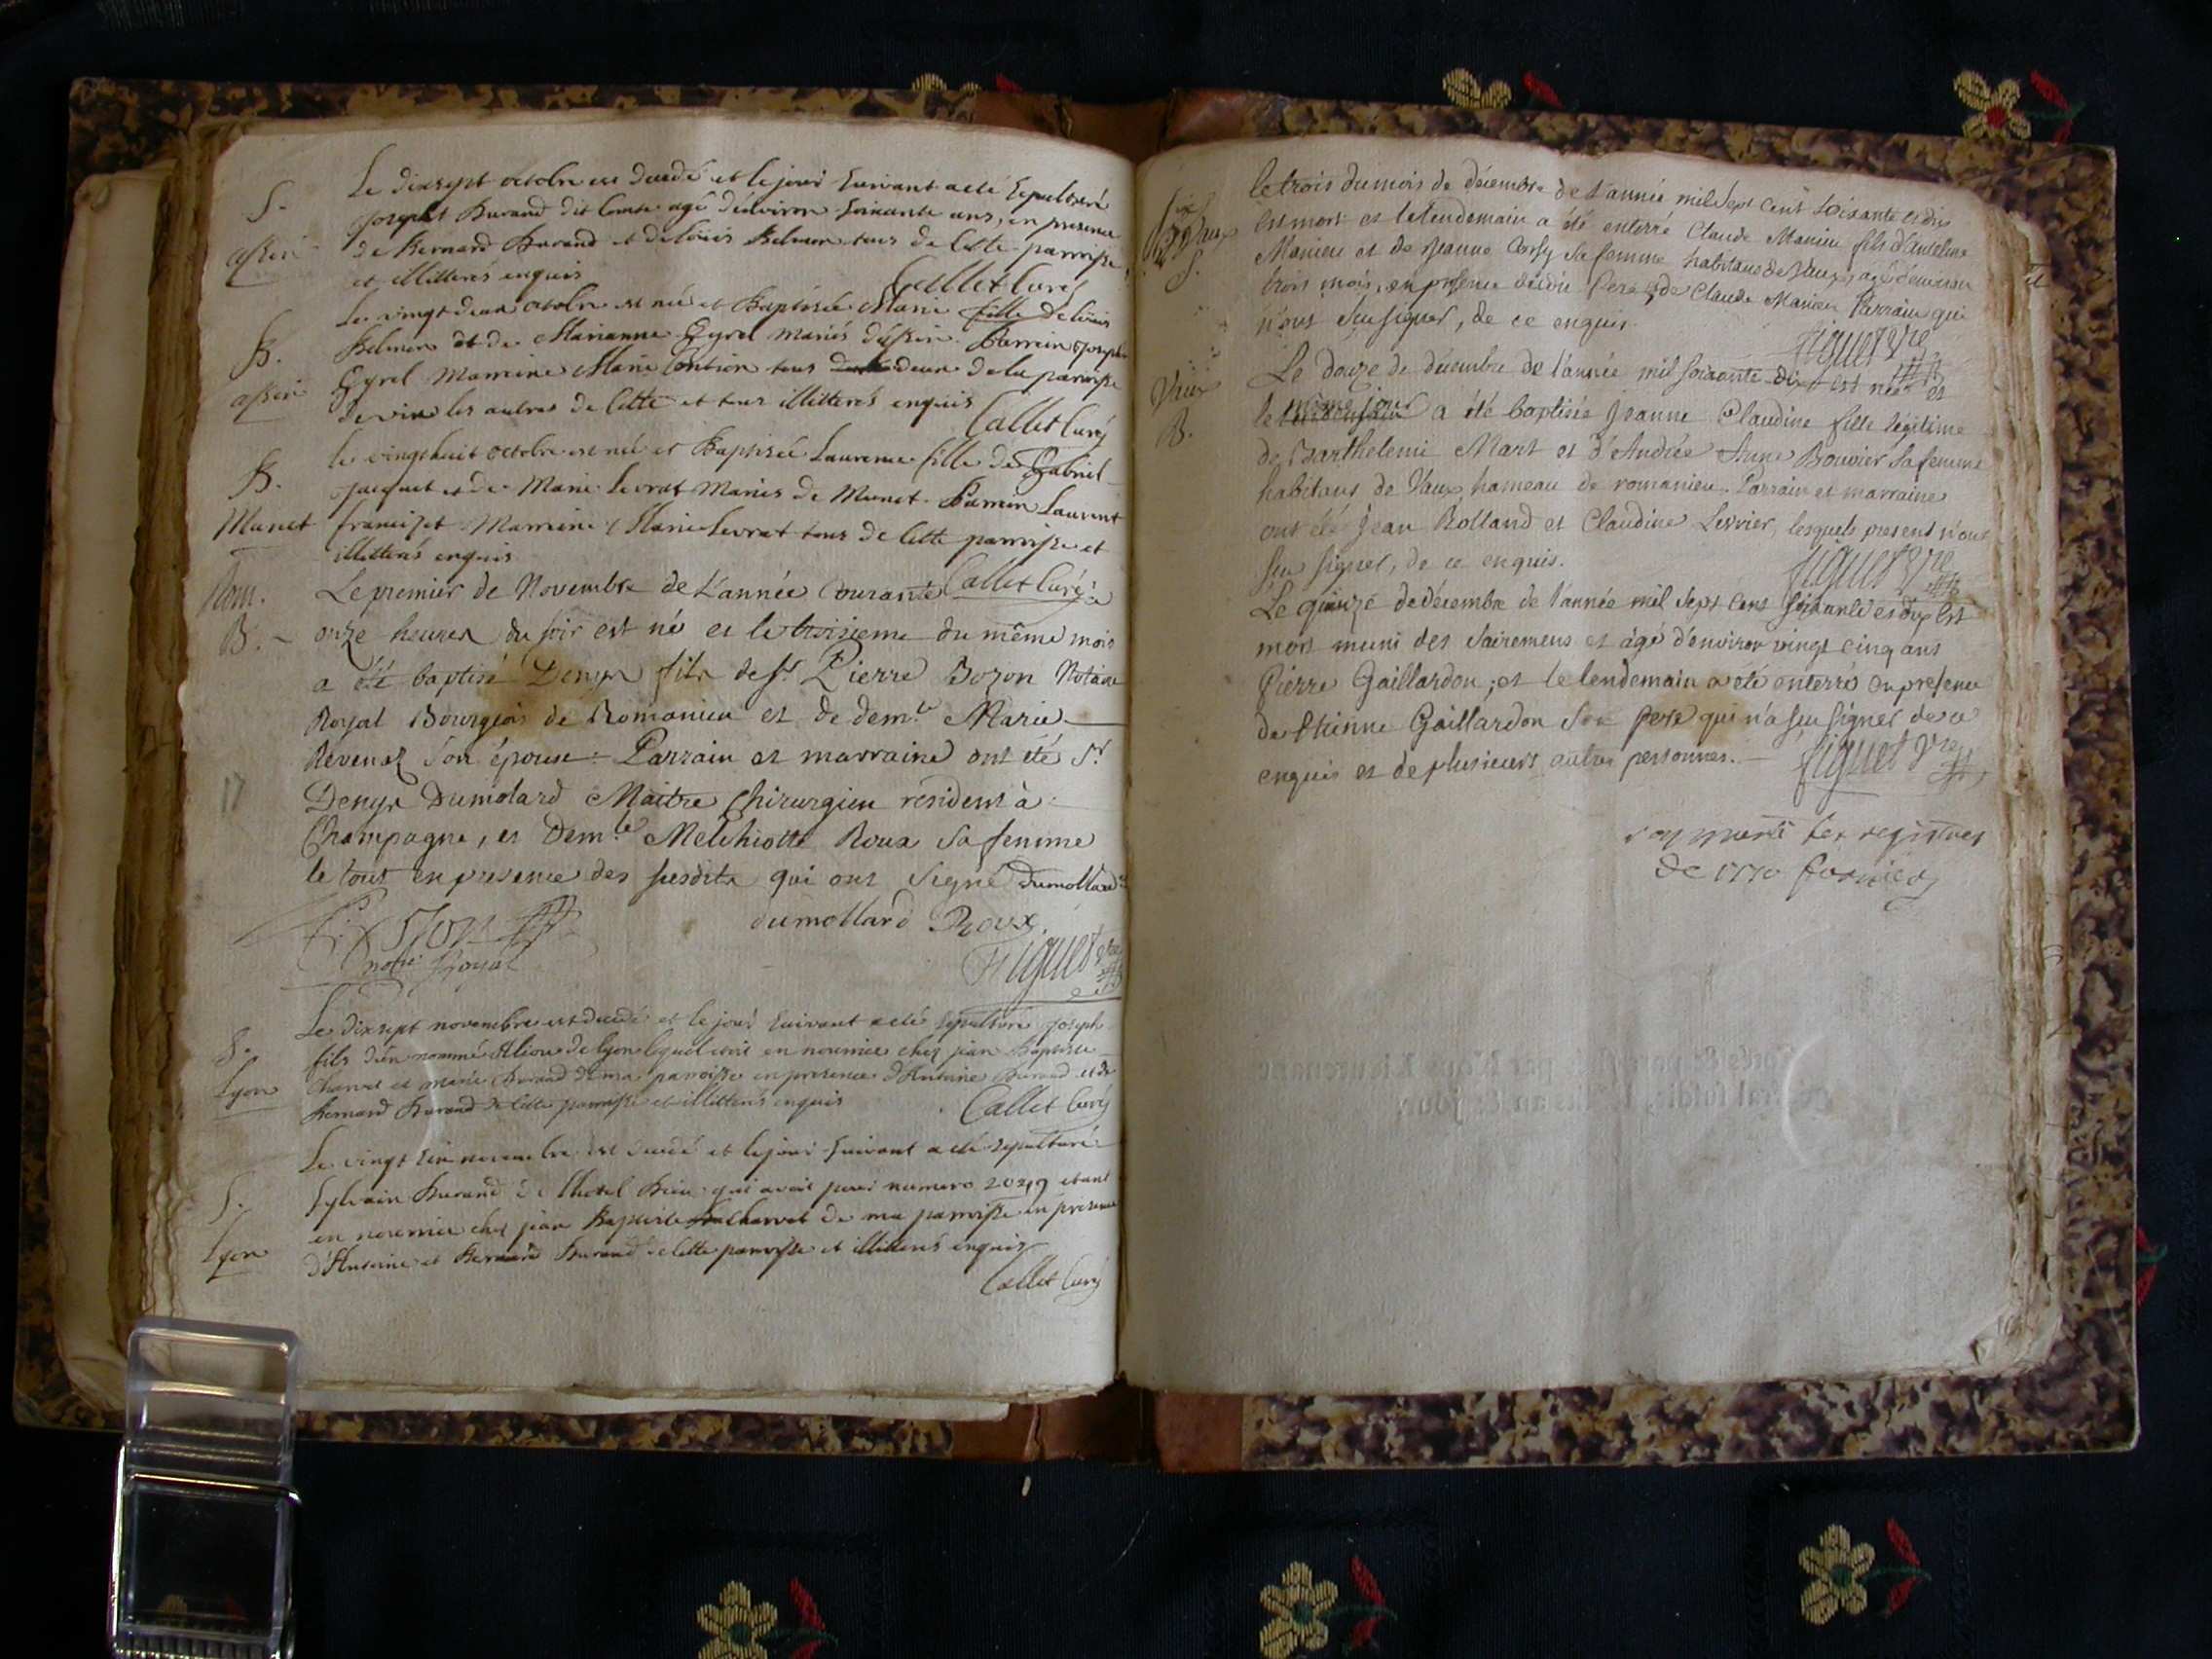 Le dixsept octobre est decedé et le jour suivant a eté sepulturé
S.
Joseph Durand dit Comte agé d'environ soixante ans, en presence
de Bernard Durand et de loüis Belmon tous de cette paroisse
et illitterés enquis
Callet Curé
Le vingt deux octobre est née et Baptisée Marie fille de loüis
B.
Belmon et de Marianne Gyrel mariés Parrein Joseph
Gyrel Marreine Marie tous deux de la paroisse
les autres de cette et tous illitterés enquis
Callet Curé
le vingt huit octobre est née et Baptisée Laurence fille de Gabriel
B.
Jacquet et de Marie Levrat Mariés de Munet. Parrein Laurent
Munet
Marreine Marie Levrat tous de cette paroisse et
illitterés enquis
Callet Curé
Rom.
Le premier de Novembre de l'année Courante a
B.
onze heures du soir est né et le troisieme du même mois
a été baptisé Denys fils de Sr. Pierre Bozon Notaire
Royal Bourgeois de Romanieu et de demlle Marie
Revenaz son épouse. Parrain et marraine ont été Sr.
Denys Dumolard Maitre Chirurgien résident à
Champagne, et Demlle Melchiotte Roux sa femme
le tout en presence des susdits qui ont signé Dumollard
dumollard Roux
Bozon
notre Royal
Figuet Vre
Le dixsept novembre est decedé et le jour suivant a eté sepulturé Joseph
S.
fils d'un nommé de lyon lequel etoit en nourrice chez jean Baptiste
Lyon
Charvet et marie Durand de ma paroisse en presence d'Antoine Durand et de
Bernard Durand de cette paroisse et illitterés enquis
Callet Curé
Le vingt six novembre est decedé et le jour suivant a eté sepulturé
S.
Sylvain Durand de l'hotel Dieu qui avoit pour numero 2049 etant
en nourrice chez jean Baptiste Charvet de ma paroisse en presence
Lyon
d'Antoine et Bernard Durand de cette paroisse et illitterés enquis
Callet Curé
le trois du mois de décembre de l'année mil sept cent soixante et dix
Vaux
est mort et le lendemain a été enterré Claude Manieu fils d'Antelme
S.
Manieu et de Jeanne sa femme habitans de Vaux, agé d'environ
trois mois, en présence dudit Pere et de Claude Manieu Parrain qui
n'ont seu signer, de ce enquis.
Figuet Vre
Le douze de décembre de l'année mil soixante-dix est née et
Vaux
le même jour a été baptisée Jeanne Claudine fille légitime
B.
de Barthelemi Mart et d'Andrée Anne Bouvier sa femme
habitans de Vaux hameau de romanieu. Parrain et marraine
ont été Jean Rolland et Claudine Levrier, lesquels présent n'ont
seu signer, de ce enquis.
Figuet Vre
Le quinze de décembre de l'année mil sept cent soixante et dix est
mort muni des sacremens et agé d'environ vingt cinq ans
Pierre Gaillardon; et le lendemain a été enterré en presence
de Etienne Gaillardon son pere qui n'a seu signer de ce
enquis et de plusieurs autres personnes.
Figuet Vre
les registres
de 1770